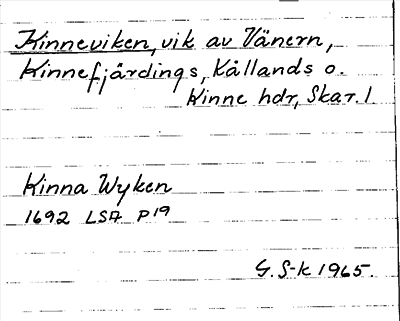 Kinneviken, vik av Vänern,
Kinnefjärdings, Kållands o.
Kinne hdr, Skar. l.
Kinna Wyken
1692 LSA P19
G. S-k 1965.